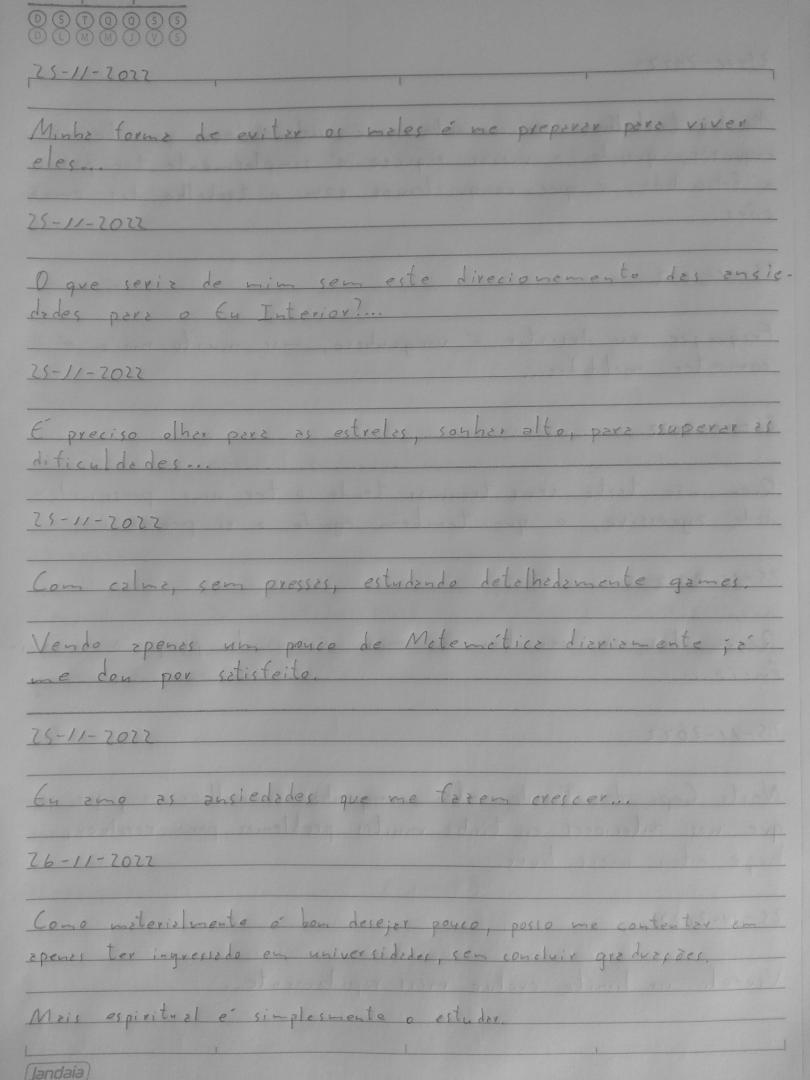 D S T Q Q S S
D L M M J V S
25-11-2022
Minha forma de evitar os males é me preparar para viver
eles...
25-11-2022
O que seria de mim sem este direcionamento das ansie-
dades para o Eu Interior?...
25-11-2022
É preciso olhar para as estrelas, sonhar alto, para superar as
dificuldades...
25-11-2022
Com calma, sem pressas, estudando detalhadamente games.
Vendo apenas um pouco de Matemática diariamente já
me dou por satisfeito.
25-11-2022
Eu amo as ansiedades que me fazem crescer...
26-11-2022
Como materialmente é bom desejar pouco, posso me contentar em
apenas ter ingressado em universidades, sem concluir graduações.
Mais espiritual é simplesmente o estudar.
jandaia